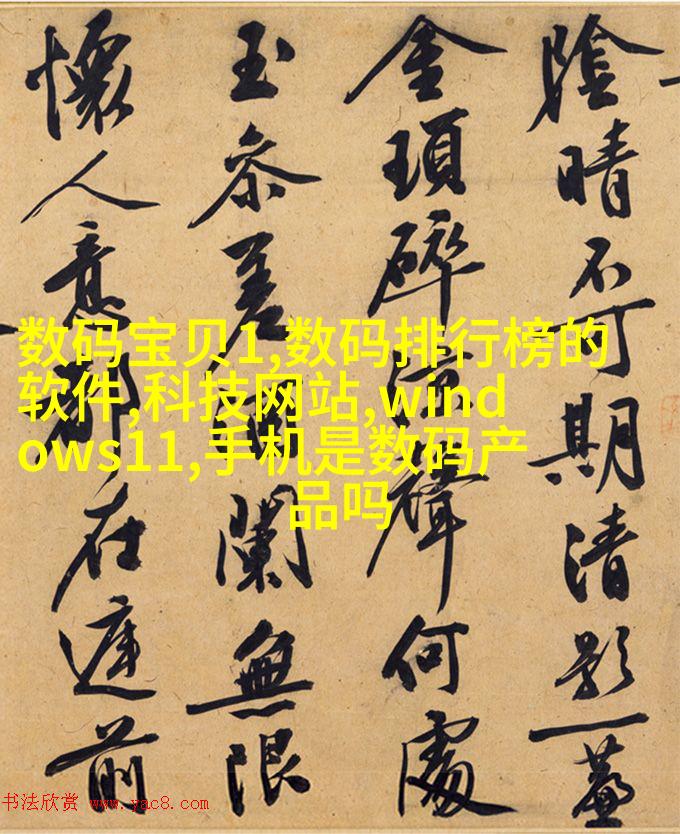 陰晴不可期清影一
金瑣碎聲何處
玉參差闌無限
懷人意都在前
数码宝贝1,数码排行榜的
软件,科技网站,wind
ows11,手机是数码产
品吗
书法欣赏 www.yac8.com